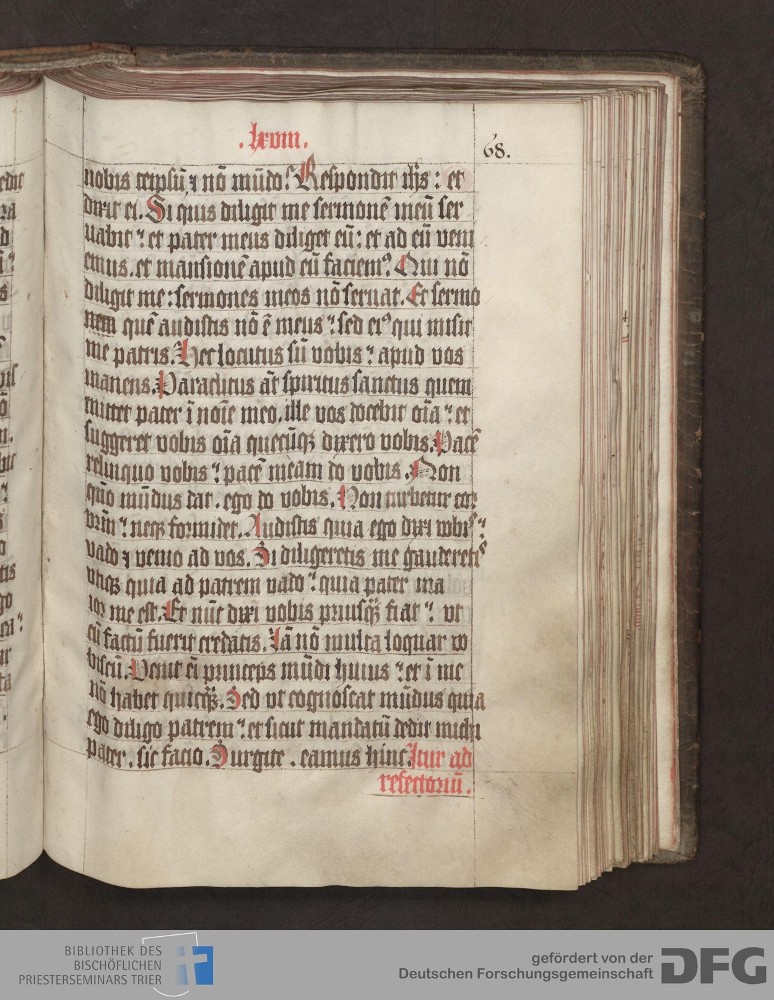 .lxviii.
68.
nobis teipsū ⁊ nō mūdo? Respondit ihs : et
dixit ei. Si quis diligit me sermonē meū ser
uabit : et pater meus diliget eū : et ad eū veni
emus. et mansionē apud eū faciemꝰ. Qui nō
diligit me : sermones meos nō seruat. Et sermo
nem quē audistis nō ē meus : sed eiꝰ qui misit
me patris. Hec locutus sū vobis : apud vos
manens. Paraclitus āt spiritus sanctus quem
mittet pater ī noīe meo. ille vos docebit oīa : et
suggeret vobis oīa quecūqꝫ dixero vobis. Pacē
relinquo vobis : pacē meam do vobis. Non
quō mūdus dat. ego do vobis. Non turbetur cor
vrm̄ : neqꝫ formidet. Audistis quia ego dixi vobis :
vado ⁊ venio ad vos. Si diligeretis me gauderetis
vtiqꝫ quia ad patrem vado : quia pater ma
ior me est. Et nūc dixi vobis priusqꝫ fiat : vt
cū factū fuerit credatis. Iā nō multa loquar vo
biscū. Venit eī princeps mūdi huius : et ī me
nō habet quicqꝫ. Sed vt cognoscat mūdus quia
ego diligo patrem : et sicut mandatū dedit michi
pater. sic facio. Surgite. eamus hinc. Itur ad
refectoriū.
BIBLIOTHEK DES
BISCHÖFLICHEN
PRIESTERSEMINARS TRIER
gefördert von der
Deutschen Forschungsgemeinschaft DFG